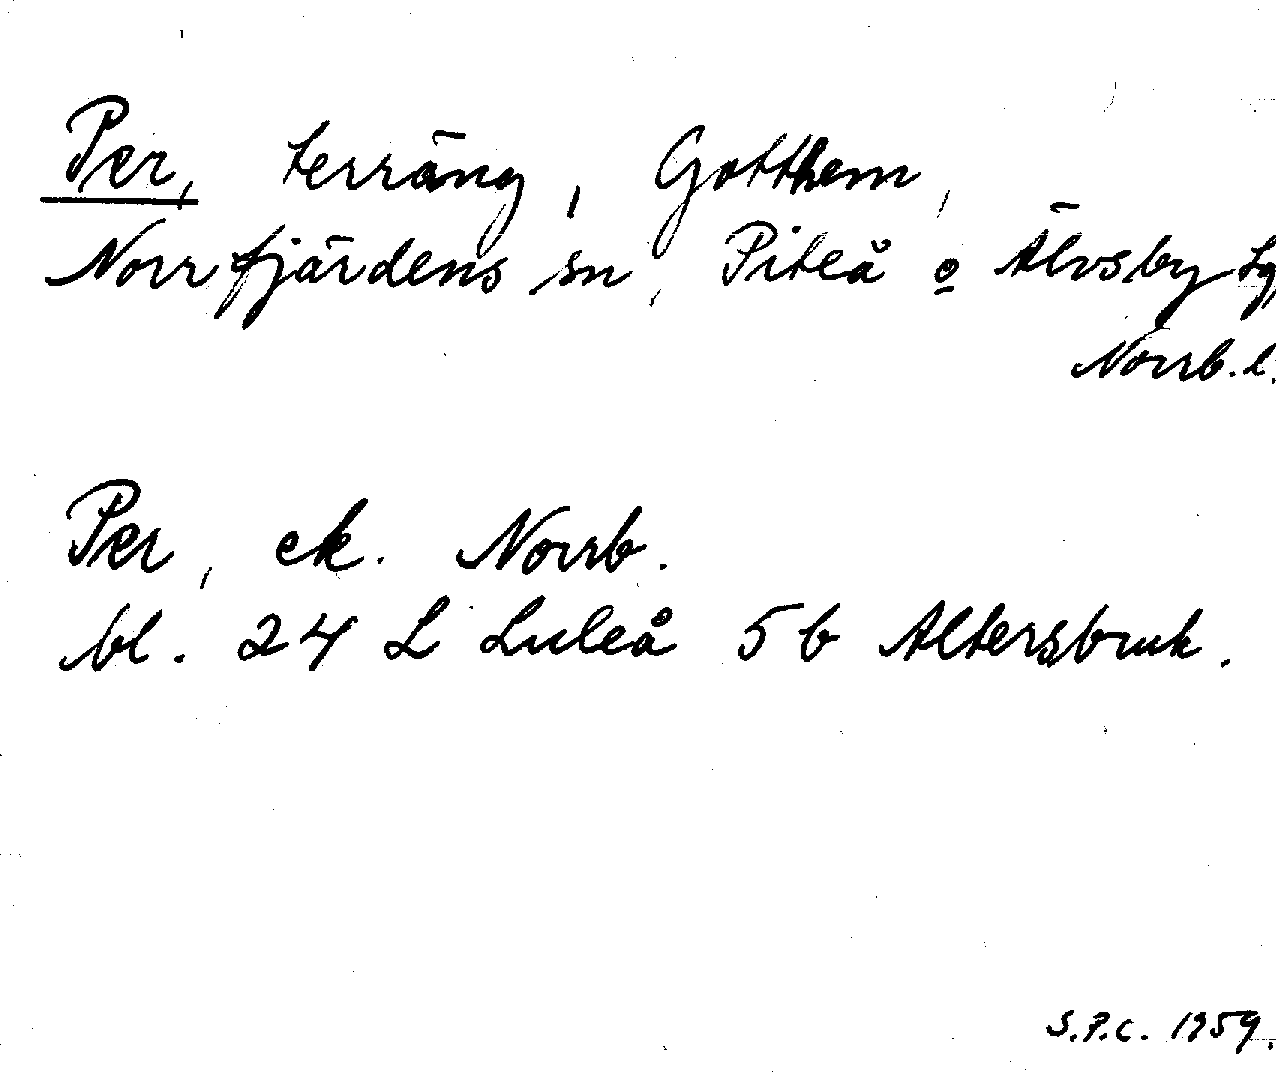 Per, terräng, Gotthem,
Norrfjärdens sn, Piteå o Älvsby tg,
Norrb. l.
Per, ek. Norrb.
bl. 24 L Luleå 5 b Altersbruk.
S.P.C. 1959.